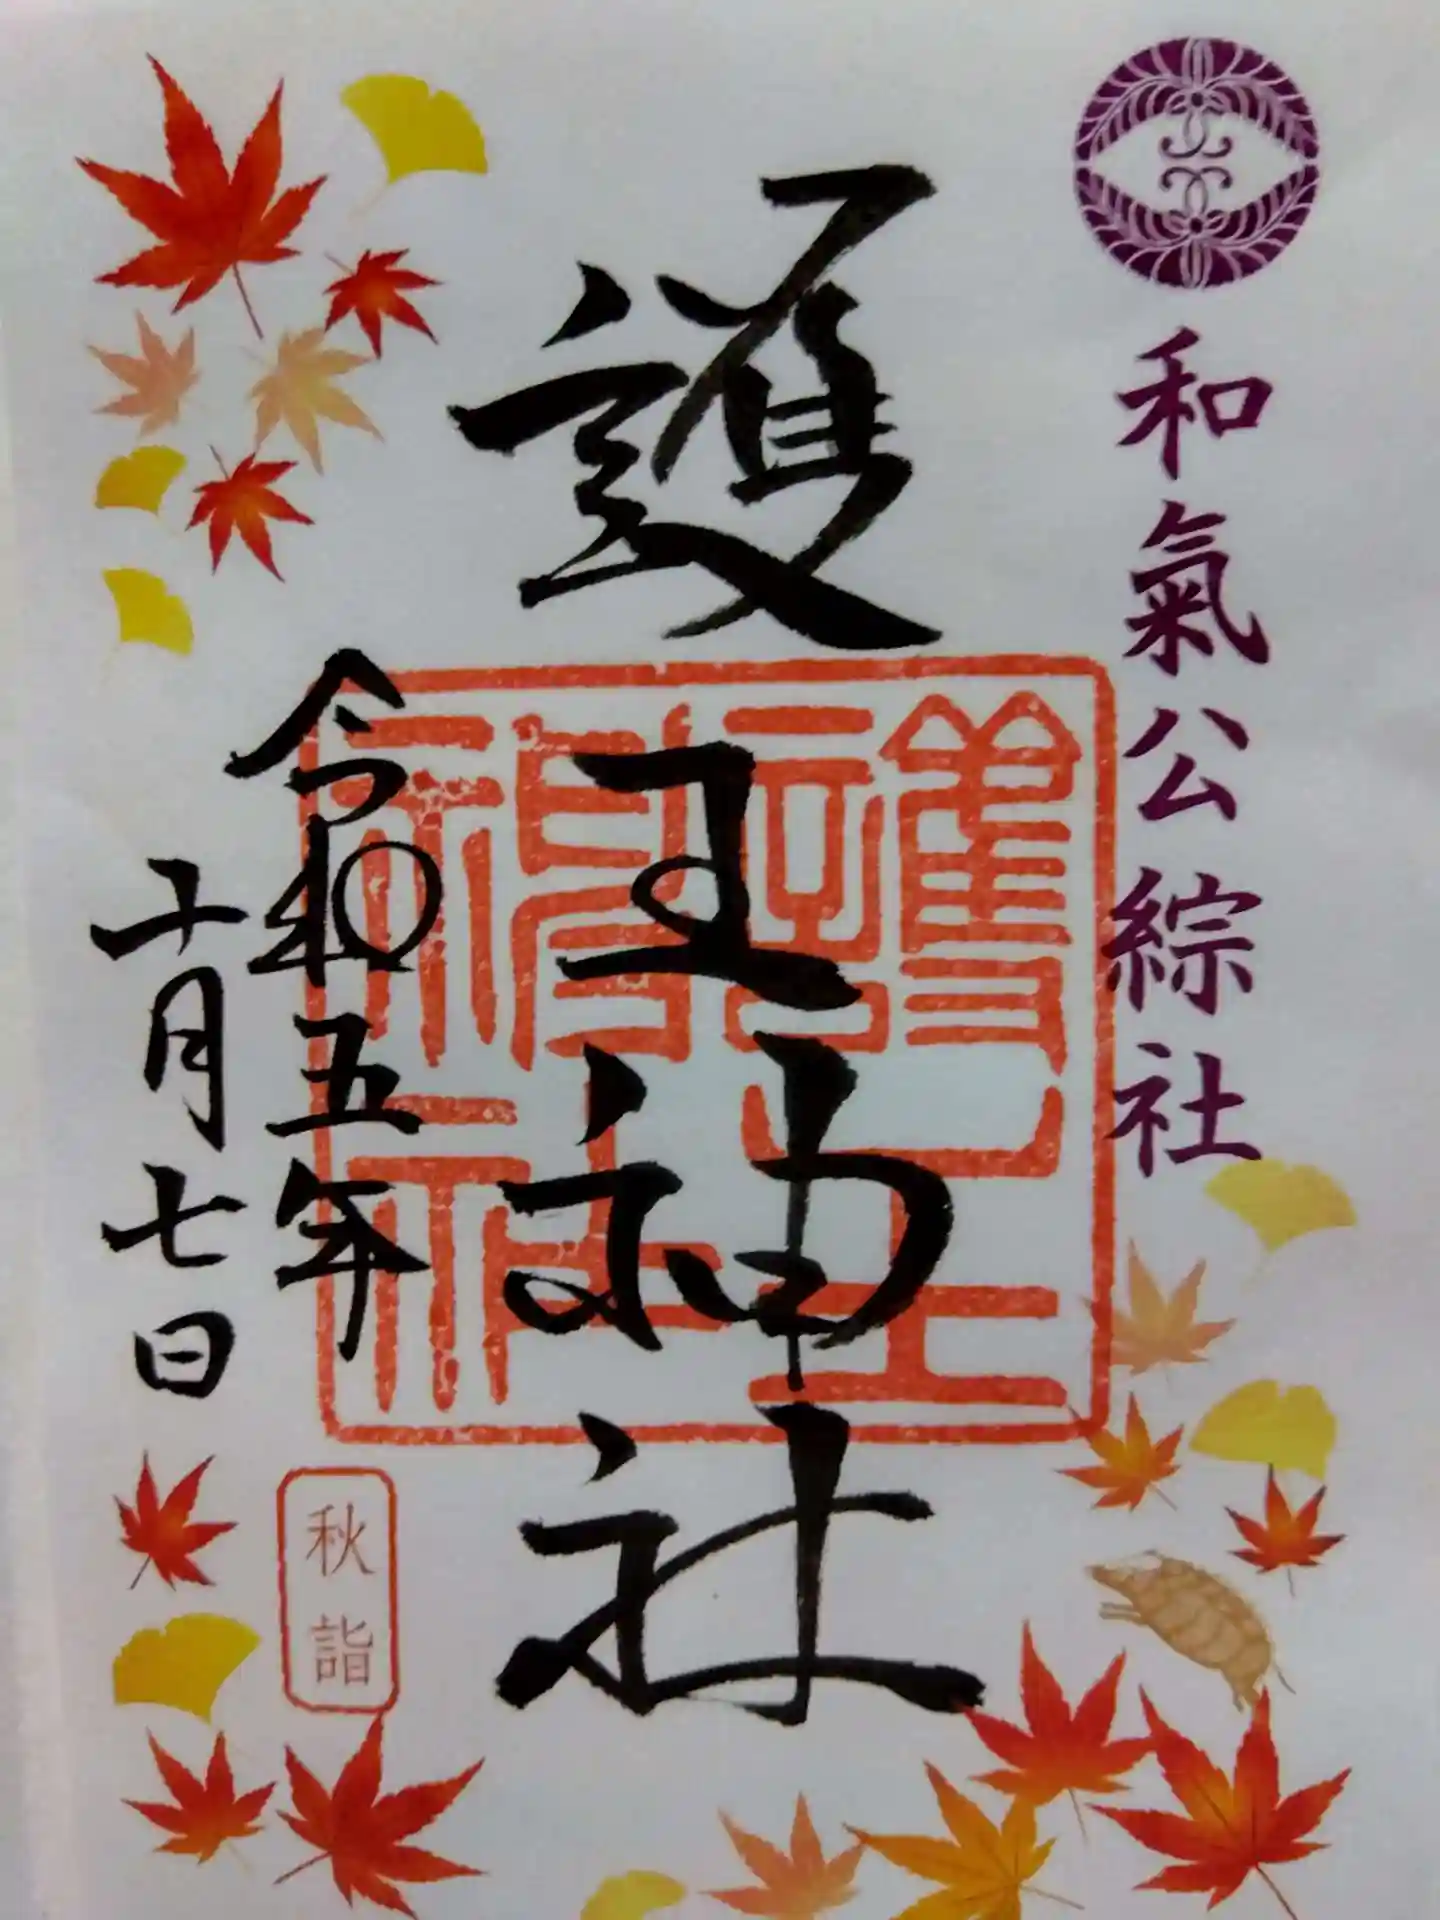 和氣公綜社
護王神社
護王神社
令和五年
十月七日
秋詣